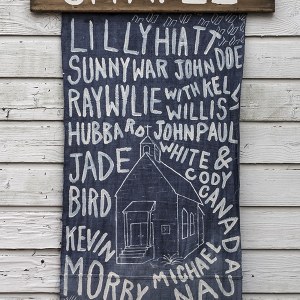 LILLY HIATT
SUNNY WAR JOHN DOE
RAY WYLIE WITH KELLY
HUBBARD WILLIS
JOHN PAUL
JADE WHITE &
BIRD CODY
CANADA
KEVIN
MORBY MICHAEL
NAU